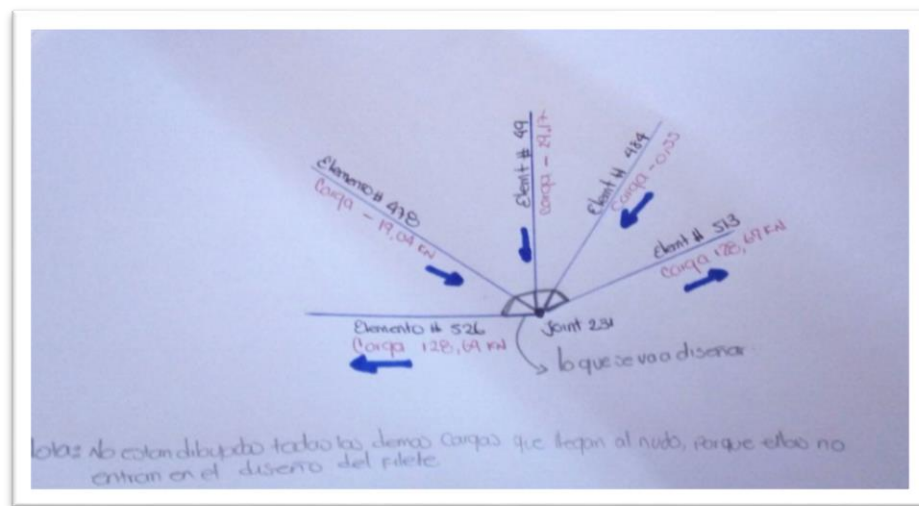 Elemento # 478
Carga - 19,04 KN
Elemt # 49
Carga - 29,17
Elemt # 484
Carga - 0,55
Elemt # 513
Carga 128,69 KN
Elemento # 526
Carga 128,69 KN
Joint 231
lo que se va a diseñar
No estan dibujados todas las demas cargas que llegan al nudo, porque ellas no
entran en el diseño del filete